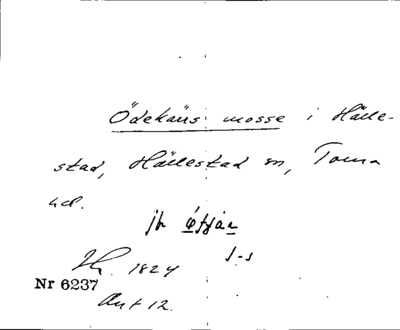 Ödekärs mosse i Hälle-
stad, Hällestad sn, Torna
hd.
jfr
1824
Nr 6237
Akt 12.